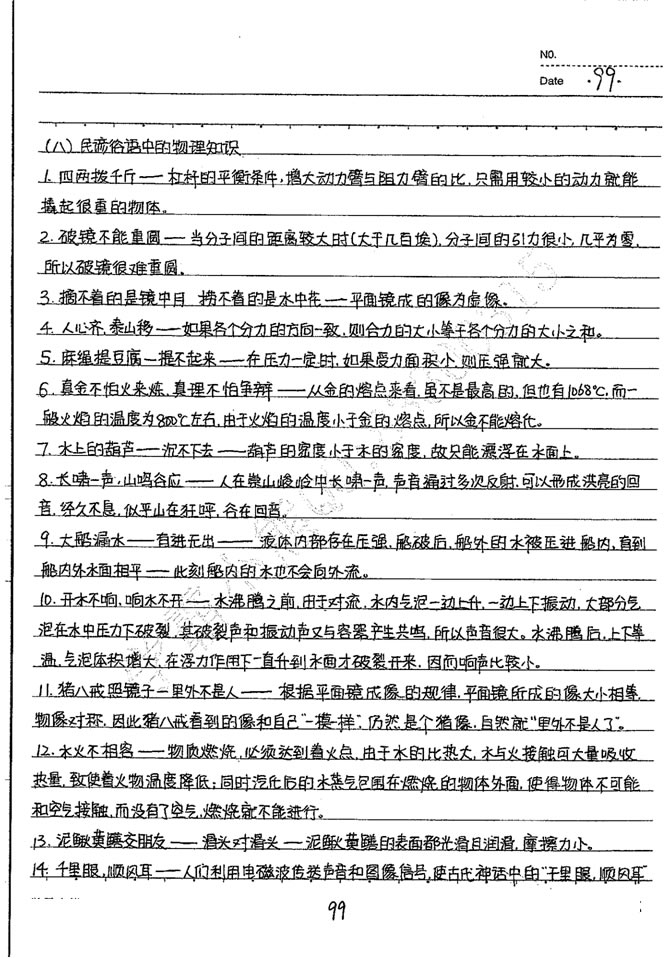 NO.
Date ·99·
(八)民谚俗语中的物理知识
1. 四两拨千斤——杠杆的平衡条件,增大动力臂与阻力臂的比,只需用较小的动力就能
撬起很重的物体。
2. 破镜不能重圆——当分子间的距离较大时(大于几百埃),分子间的引力很小,几乎为零,
所以破镜很难重圆。
3. 摘不着的是镜中月 捞不着的是水中花——平面镜成的像为虚像。
4. 人心齐,泰山移——如果各个分力的方向一致,则合力的大小等于各个分力的大小之和。
5. 麻绳提豆腐—提不起来——在压力一定时,如果受力面积小,则压强就大。
6. 真金不怕火来炼,真理不怕争辩——从金的熔点来看,虽不是最高的,但也有1068℃,而一
般火焰的温度为800℃左右,由于火焰的温度小于金的熔点,所以金不能熔化。
7. 水上的葫芦——沉不下去——葫芦的密度小于水的密度,故只能漂浮在水面上。
8. 长啸一声,山鸣谷应——人在崇山峻岭中长啸一声,声音通过多次反射,可以形成洪亮的回
音,经久不息,似乎山在狂呼,谷在回音。
9. 大船漏水——有进无出——液体内部存在压强,船破后,船外的水被压进船内,直到
船内外水面相平——此刻船内的水也不会向外流。
10. 开水不响,响水不开——水沸腾之前,由于对流,水内气泡一边上升,一边上下振动,大部分气
泡在水中压力下破裂,其破裂声和振动声又与容器产生共鸣,所以声音很大。水沸腾后,上下等
温,气泡体积增大,在浮力作用下一直升到水面才破裂开来,因而响声比较小。
11. 猪八戒照镜子—里外不是人——根据平面镜成像的规律,平面镜所成的像大小相等,
物像对称,因此猪八戒看到的像和自己"一模一样",仍然是个猪像,自然就"里外不是人了"。
12. 水火不相容——物质燃烧,必须达到着火点,由于水的比热大,水与火接触可大量吸收
热量,致使着火物温度降低;同时汽化后的水蒸气包围在燃烧的物体外面,使得物体不可能
和空气接触,而没有了空气,燃烧就不能进行。
13. 泥鳅黄鳝交朋友——滑头对滑头——泥鳅黄鳝的表面都光滑且润滑,摩擦力小。
14. 千里眼,顺风耳——人们利用电磁波传送声音和图像信号,使古代神话中的"千里眼,顺风耳"
99